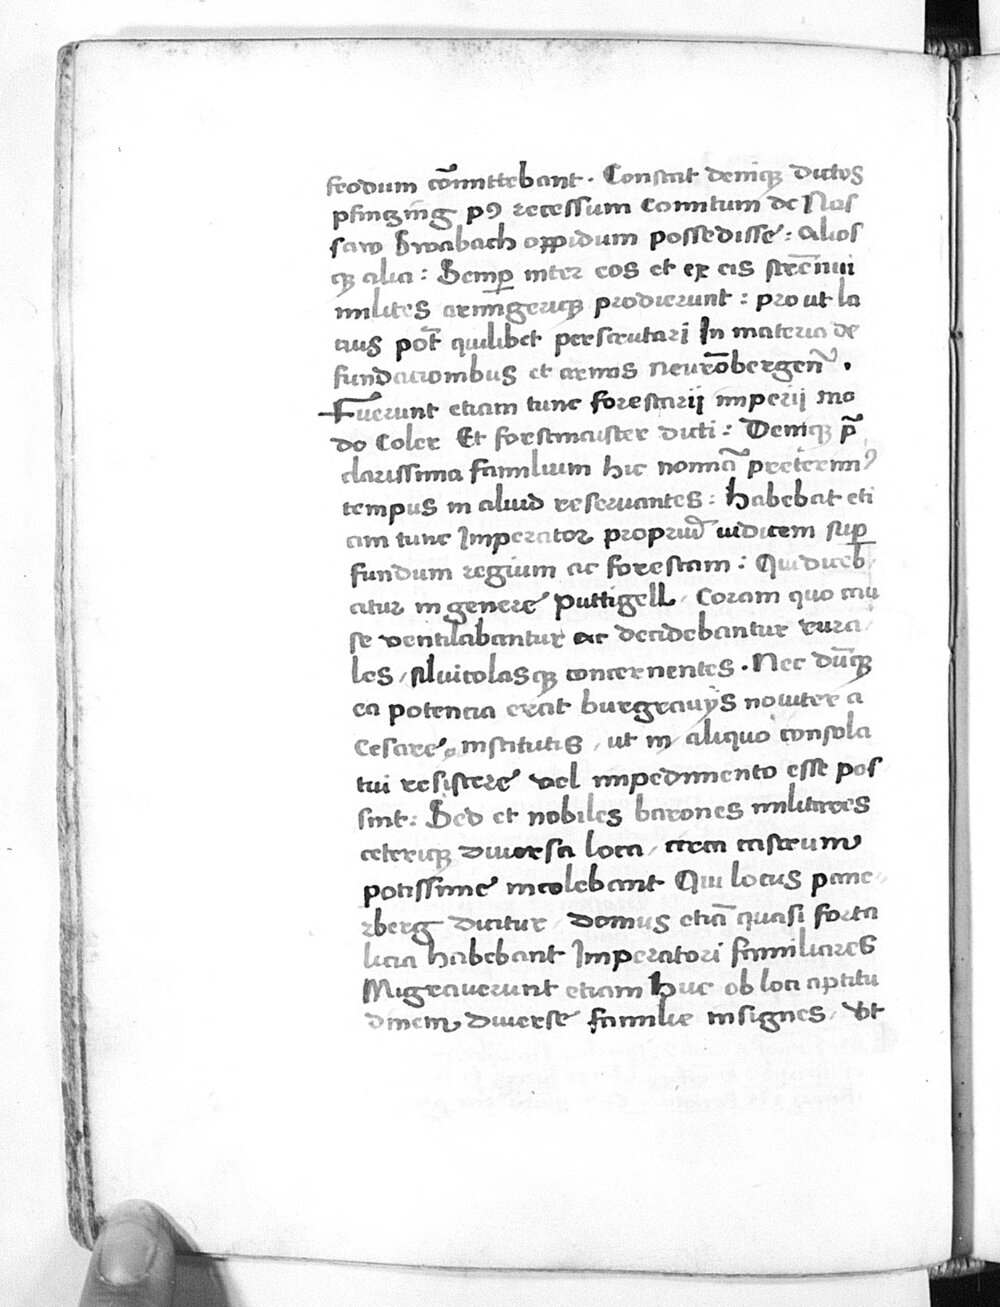 feodum cōmittebant. Constat deniqꝫ dictos
pfinczing pꝰ recessum Comitum de Nas
saw Swabach oppidum possedisse: alios
qꝫ alia: Semꝑ inter eos et ex eis strēnui
milites armigeriqꝫ prodierunt: pro ut la
cius pōt quilibet perscrutari In materia de
fundacionibus et armis Neurōbergen̄.
Fuerunt etiam tunc forestarij imperij mo
do Coler Et forstmaister dicti: Deniqꝫ p̄
clarissima familiam hic nomīa pretermiꝰ
tempus in aliud reservantes: Habebat eti
am tunc Imperator propriū iudicem suꝑ
fundum regium ac forestam: Qui diceb
atur in genere puttigell, Coram quo cau
se ventilabantur ac decidebantur rura/
les, siluicolasqꝫ concernentes. Nec dūqꝫ
ea potencia erat burgravijs noviter a
Cesare institutis, ut in aliquo consola
tui resistere vel impedimento esse pos
sint: Sed et nobiles barones militares
ceteriqꝫ diversa loca, circa castrum
potissime incolebant Qui locus panc
rberg dicitur, domus etiā quasi forta
licia habebant Imperatori familiares
Migraverunt etiam huc ob loci aptitu
dinem diverse familie insignes, Vt